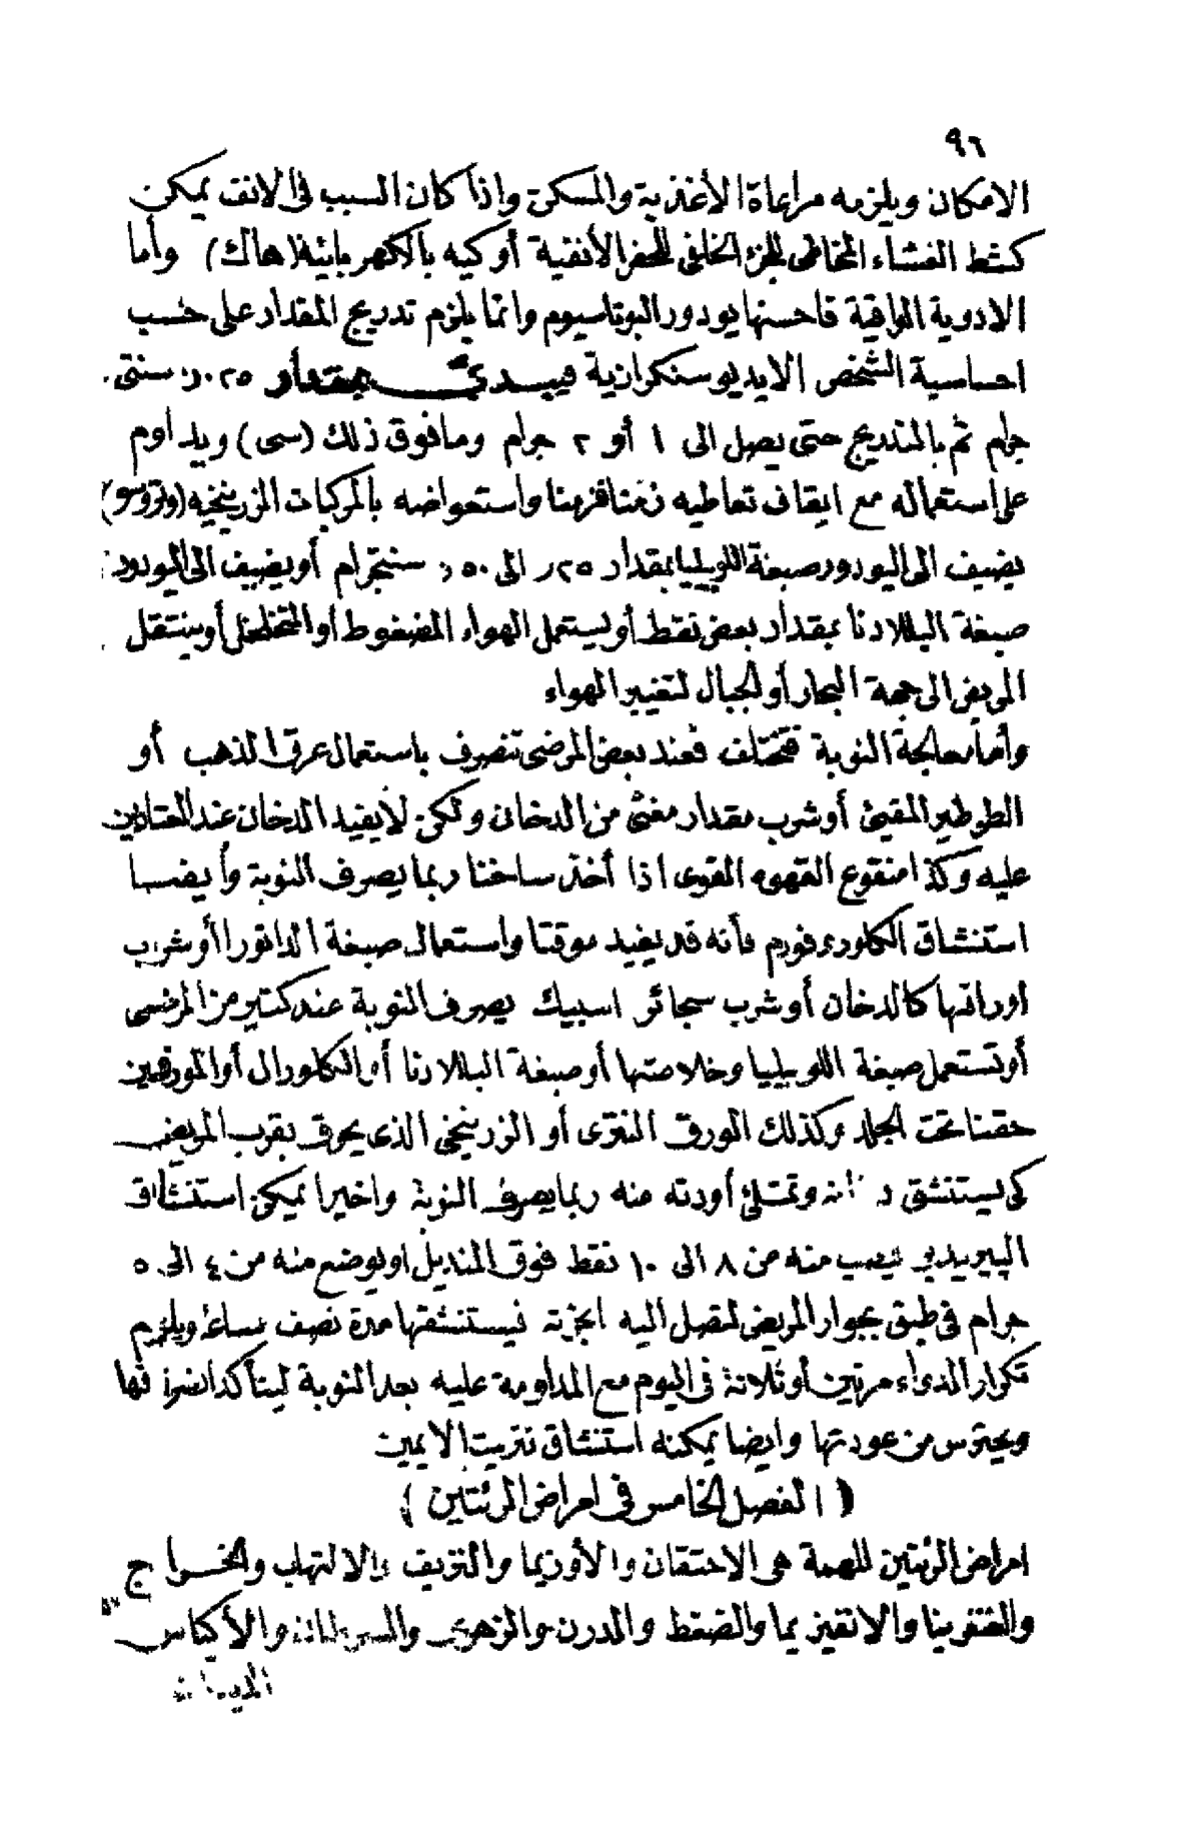 ٩٦
الامكان ويلزمه مراعاة الأغذية والمسكن واذا كان السبب فى الانف يمكن
كشط الغشاء المخاطى للجزء الخلفى للحفر الأنفية أو كيه بالكهربائية (هاك) وأما
الادوية الواقية فاحسنها يودور البوتاسيوم وانما يلزم تدريج المقدار على حسب
احساسية الشخص الايديوسنكرازية فيبدئ بمقدار ٠٢٥ر٠ سنتى
جرام ثم بالتدريج حتى يصل الى ١ أو ٢ جرام ومافوق ذلك (سى) ويداوم
على استعماله مع ايقاف تعاطيه زمنا فزمنا واستعواضه بالمركبات الزرنيخيه (وتروسو)
يضيف الى اليودور صبغة اللوبيليا بمقدار ٢٥ر الى ٥٠ر سنتجرام أو يضيف الى اليودور
صبغة البللادنا بمقدار بعض نقط أو يستعمل الهواء المضغوط أو المتخلخل أو ينتقل
المريض الى جهة البحار أو الجبال لتغيير الهواء
وأما معالجة النوبة فتختلف فعند بعض المرضى تنصرف باستعمال عرق الذهب أو
الطرطير المقيئ أو شرب مقدار مغثى من الدخان ولكن لا يفيد الدخان عند المعتادين
عليه وكذا منقوع القهوه القوى اذا أخذ ساخنا ربما يصرف النوبة وأيضا
استنشاق الكلوروفورم فأنه قد يفيد موقتا واستعمال صبغة الداتورا أو شرب
اوراقها كالدخان أو شرب سجائر اسبيك يصرف النوبة عند كثير من المرضى
أو تستعمل صبغة اللوبيليا وخلاصتها أو صبغة البللادنا أو الكلورال أو المورفين
حقنا تحت الجلد وكذلك الورق النترى أو الزرنيخى الذى يحرق بقرب المريض
كى يستنشق وتمتلئ أودته منه ربما يصرف النوبة واخيرا يمكن استنشاق
البيريدين فيصب منه من ٨ الى ١٠ نقط فوق المنديل او يوضع منه من ٤ الى ٥
جرام فى طبق بجوار المريض لتصل اليه ابخرته فيستنشقها مدة نصف ساعة ويلزم
تكرار الدواء مرتين أو ثلاثة فى اليوم مع المداومة عليه بعد النوبة ليتأكد انصرافها
ويحترس من عودتها وايضا يمكنه استنشاق نتريت الايمين
( الفصل الخامس فى امراض الرئتين )
امراض الرئتين المهمة هى الاحتقان والأوزيما والنزيف والالتهاب والخراج
والغنغرينا والانفيزيما والضغط والدرن والزهرى والسرطان والأكياس